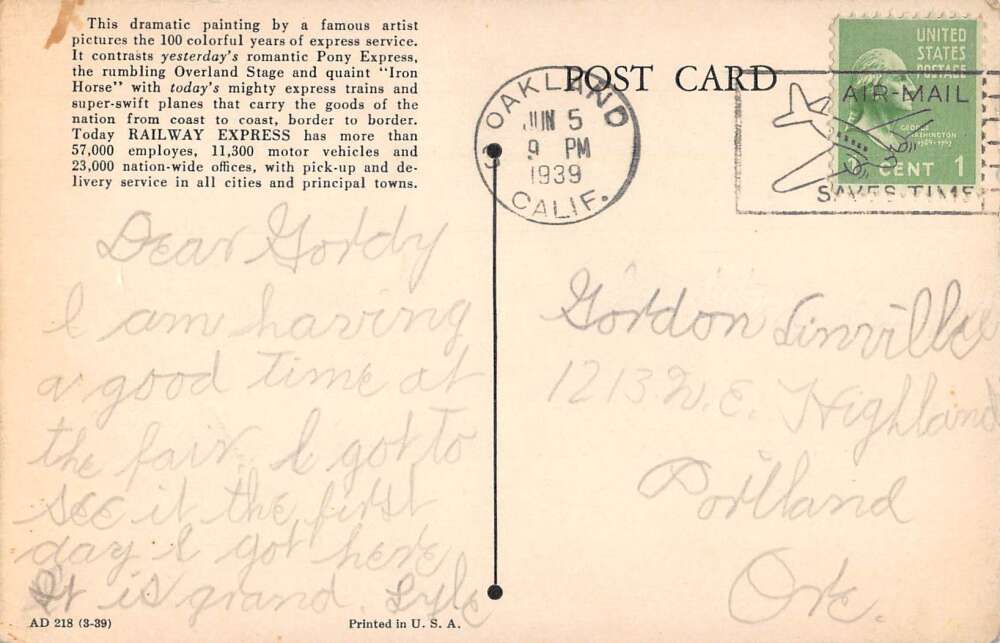 This dramatic painting by a famous artist
pictures the 100 colorful years of express service.
It contrasts yesterday's romantic Pony Express,
the rumbling Overland Stage and quaint "Iron
Horse" with today's mighty express trains and
super-swift planes that carry the goods of the
nation from coast to coast, border to border.
Today RAILWAY EXPRESS has more than
57,000 employes, 11,300 motor vehicles and
23,000 nation-wide offices, with pick-up and de-
livery service in all cities and principal towns.
POST CARD
OAKLAND
JUN 5
9 PM
1939
CALIF.
UNITED
STATES
POSTAGE
AIR-MAIL
GEORGE
WASHINGTON
1 CENT 1
SAVES TIME
Dear Gordy
I am having
a good time at
the fair. I got to
see it the first
day I got here
It is grand. Lyle
Gordon Linville
1213 N.E. Highland
Portland
Ore.
AD 218 (3-39)
Printed in U. S. A.